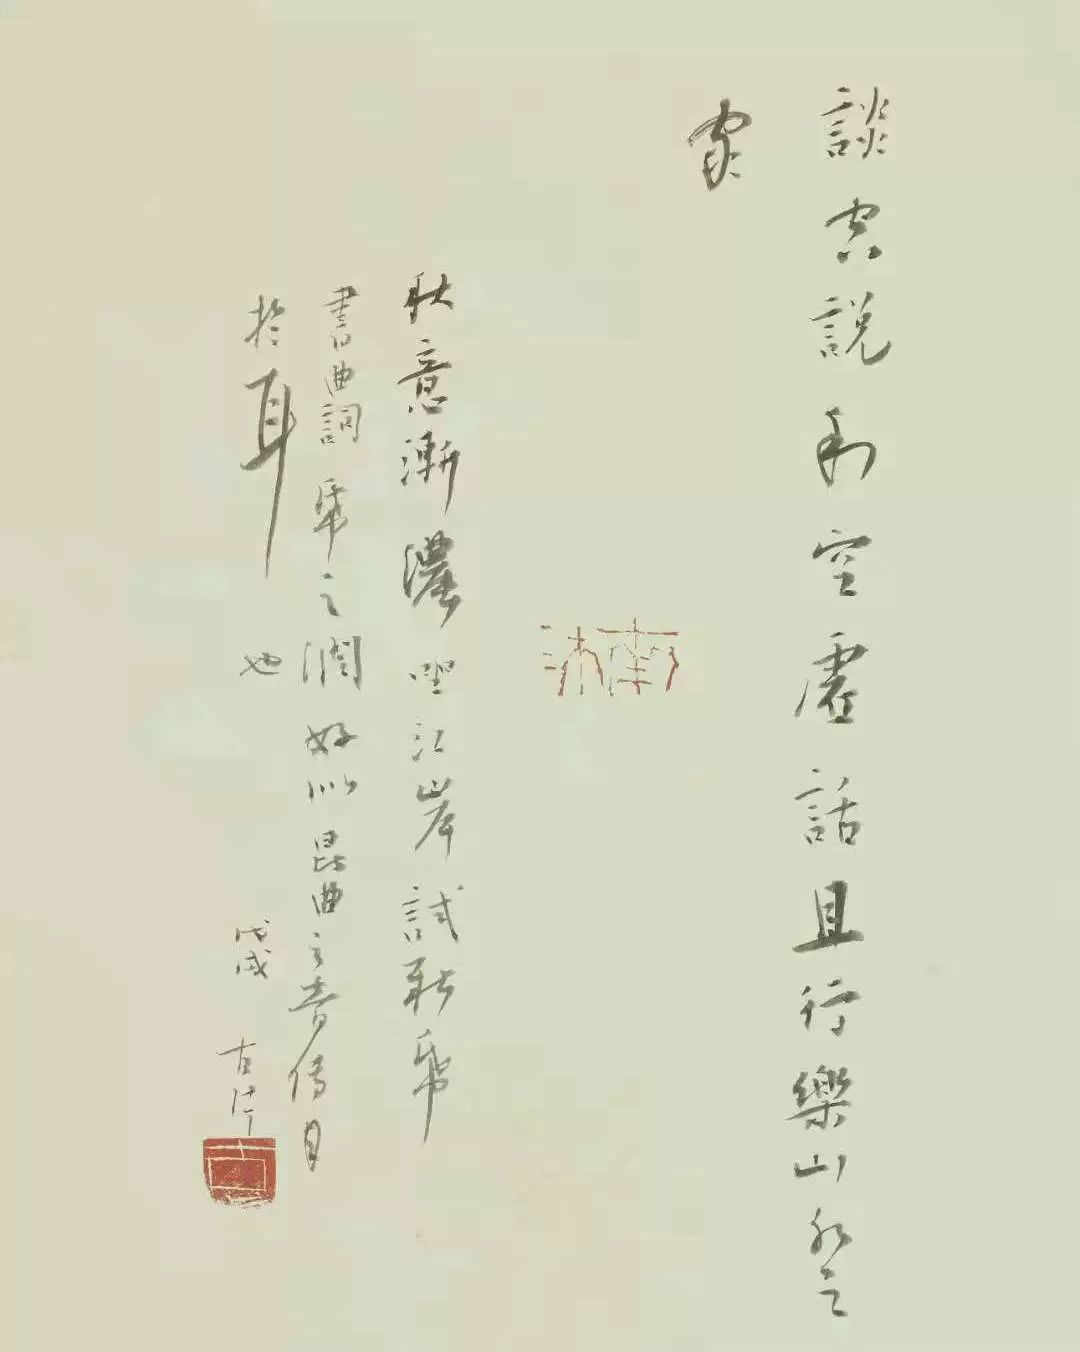 談空說利空虛話且行樂山水之
家
秋意漸濃坐江岸試新帋
書曲詞帋之潤好似昆曲之音傳自
於耳也 戊戌 古津